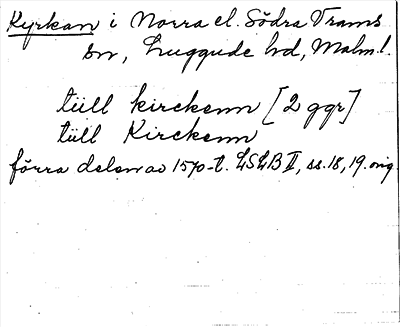 Kyrkan i Norra el. Södra Vrams
sn, Luggude hd, Malm. l.
tüll kirckenn [2 ggr]
tüll Kirckenn
förra delen av 1570-t. LSLB II, ss. 18, 19. orig.